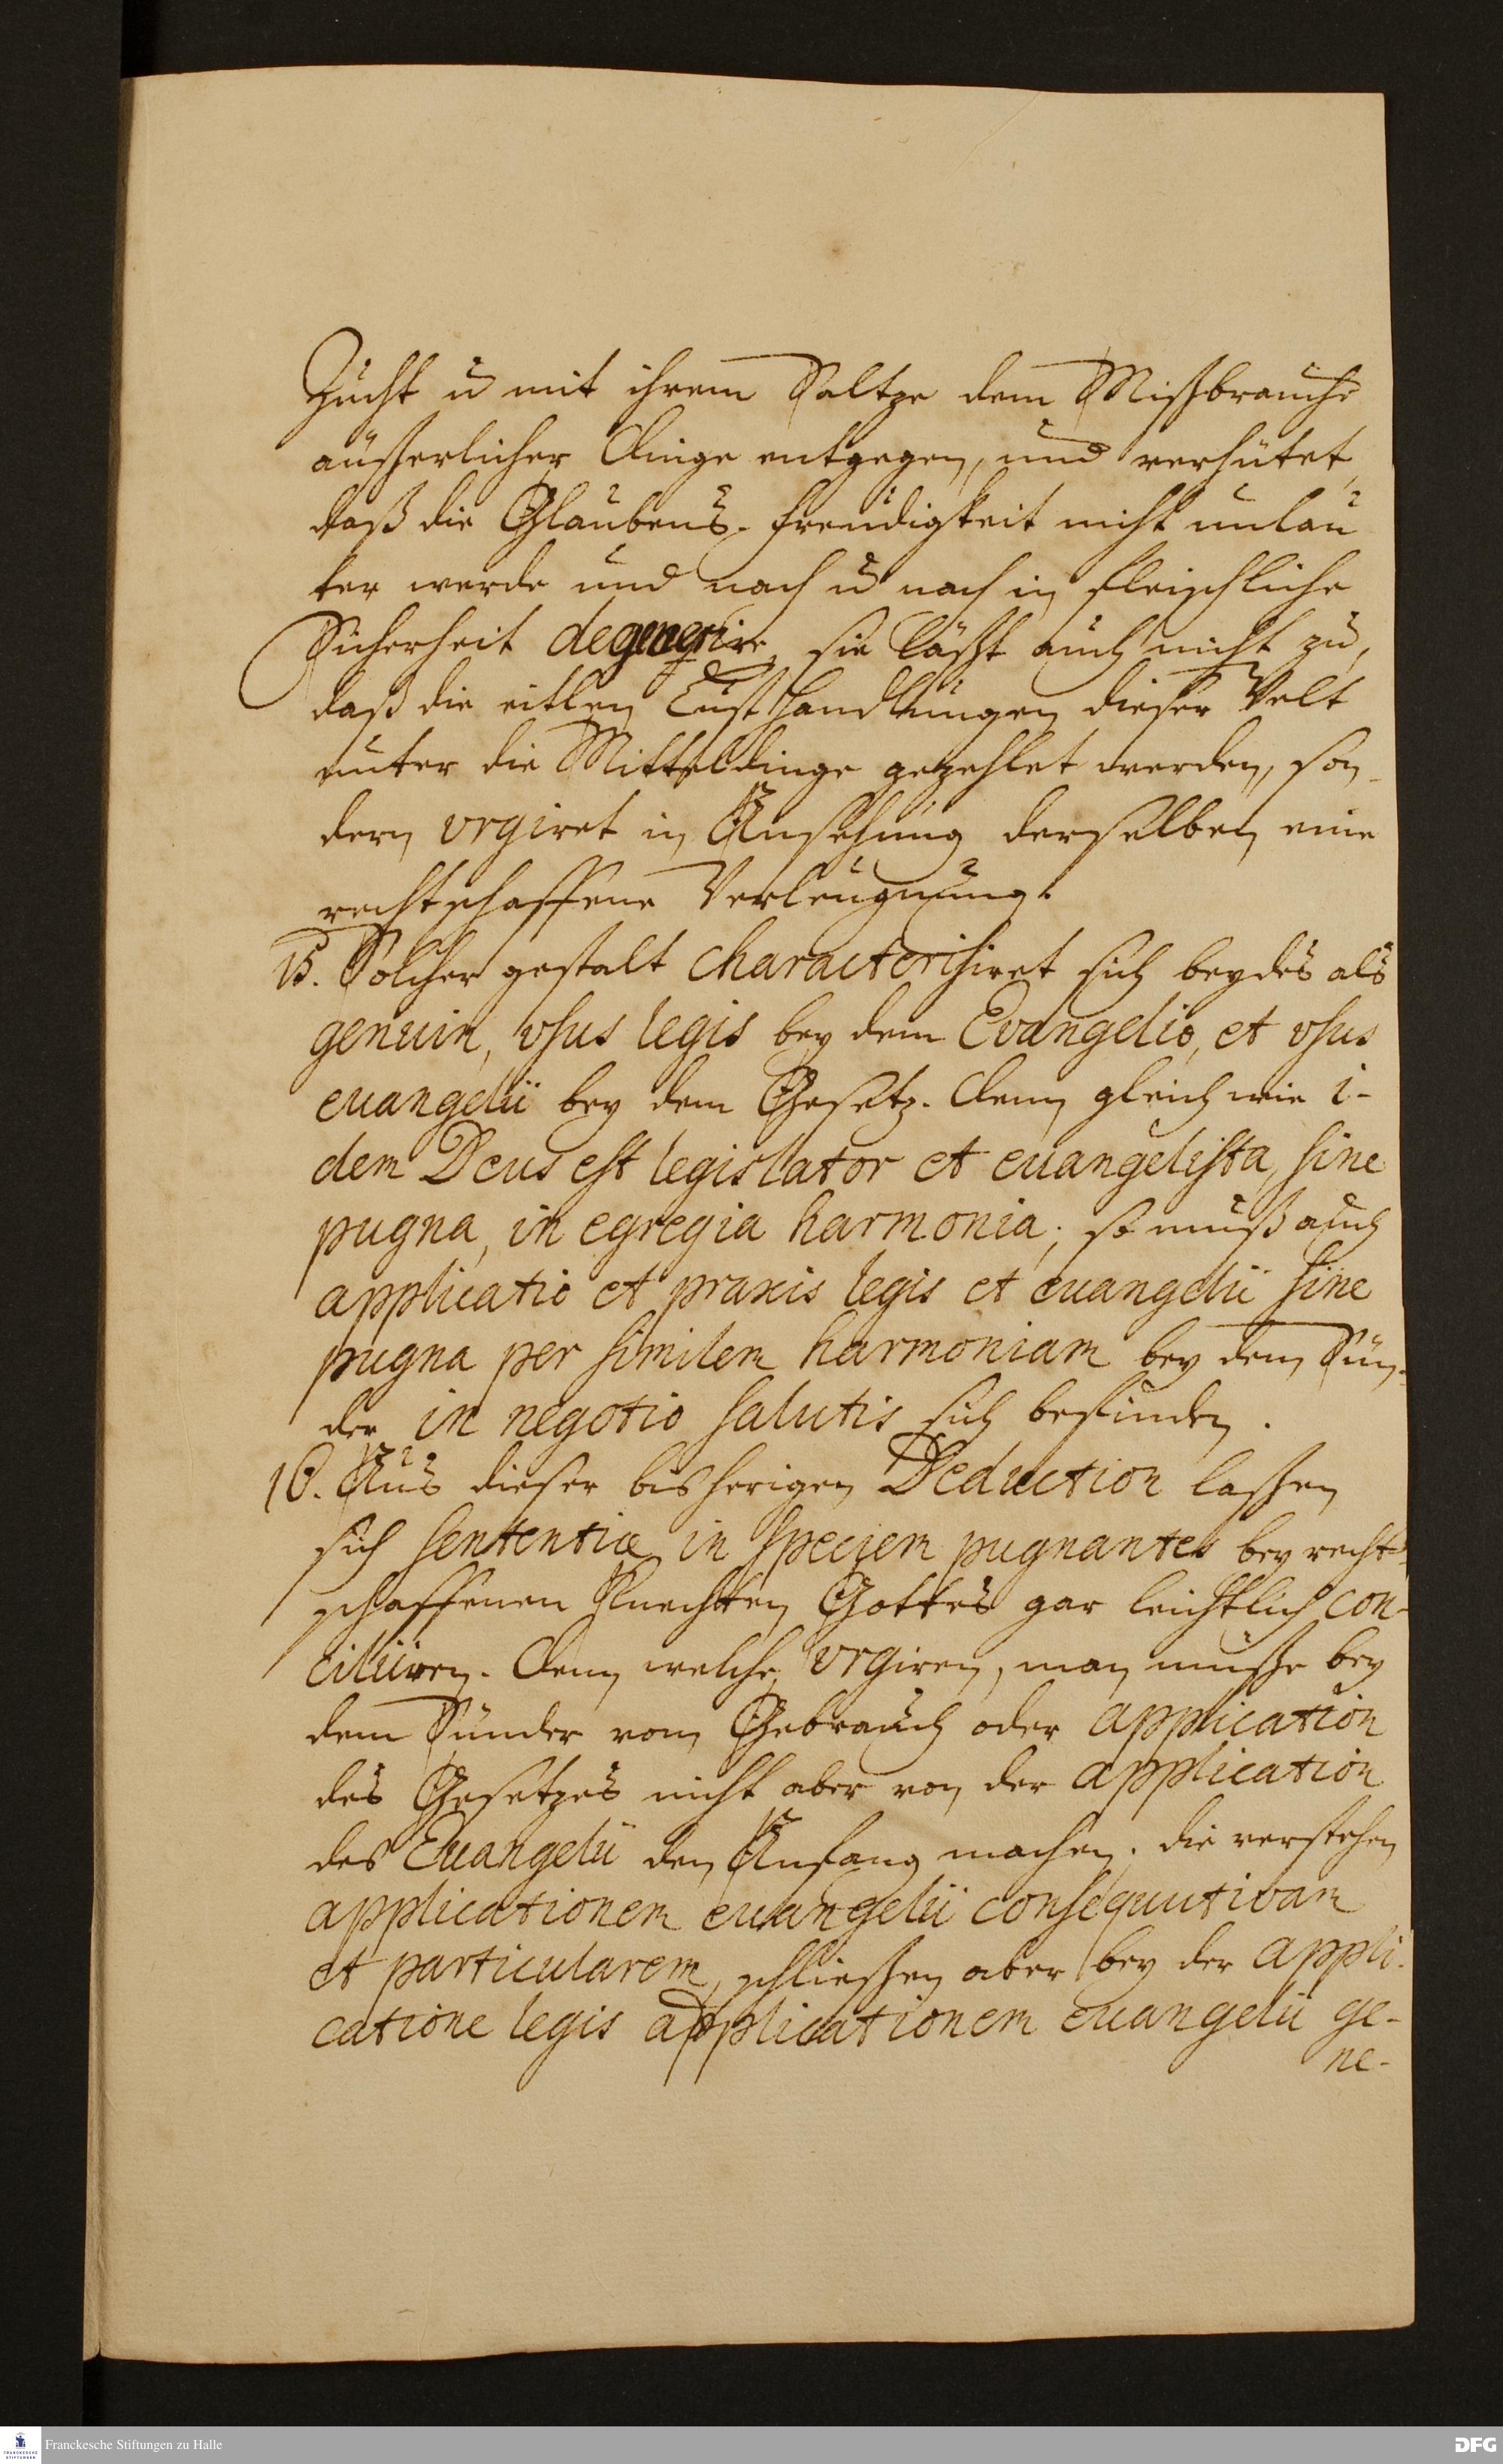 Zucht u mit ihrem Saltze dem Mißbrauche
äußerlicher Dinge entgegen, und verhütet,
daß die Glaubens-freudigkeit nicht unlau
ter werde und nach u nach in fleischliche
Sicherheit degenerire, sie läßt auch nicht zu,
daß die eitlen Lusthandlungen dieser Welt
unter die Mitteldinge gezehlet werden, son-
dern vrgiret in Ansehung derselben eine
rechtschaffene Verleugnung.
15. Solcher gestalt characterisiret sich beydes als
genuin, vsus legis bey dem Evangelio, et vsus
euangelii bey dem Gesetz. Denn gleich wie i-
dem Deus est legislator et euangelista, sine
pugna, in egregia harmonia; so muß auch
applicatio et praxis legis et euangelii sine
pugna per similem harmoniam bey dem Sün-
der in negotio salutis sich befinden.
16. Aus dieser bisherigen Deduction laßen
sich sententiæ in speciem pugnantes bey recht-
schaffenen Knechten Gottes gar leichtlich con-
ciliiren. Denn welche vrgiren, man müße bey
dem Sünder vom Gebrauch oder application
des Gesetzes nicht aber von der application
des Euangelii den Anfang machen; die verstehen
applicationem euangelii consequutivam
et particularem, schließen aber bey der appli-
catione legis applicationem euangelii ge-
ne-
Franckesche Stiftungen zu Halle
DFG